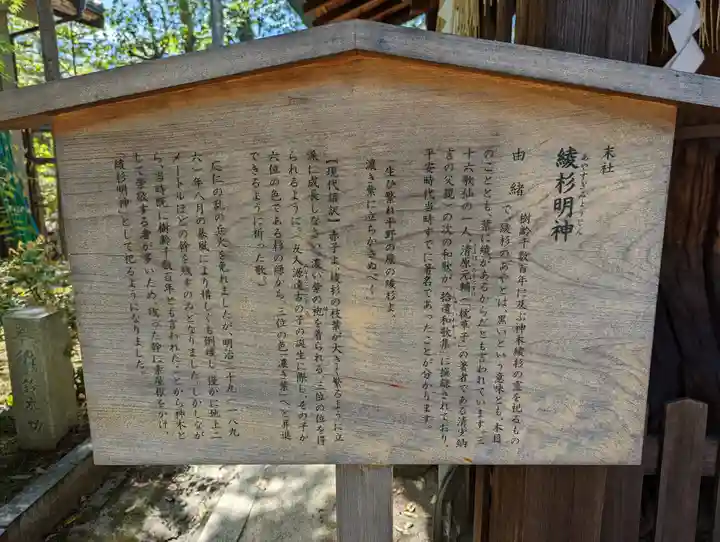 末社
あやすぎみょうじん
綾杉明神
由緒 樹齢千数百年に及ぶ神木綾杉の霊を祀るもの
で、綾杉のあやとは、黒いという意味とも、木目
のこととも、葉に綾があるからだとも言われています。三
十六歌仙の一人、清原元輔(「枕草子」の著者である清少納
言の父親)の次の和歌が、拾遺和歌集に掲載されており、
平安時代当時すでに著名であったことが分かります。
生ひ繁れ平野の原の綾杉よ、
濃き紫に立ちかさぬべく
【現代語訳】赤子よ、綾杉の枝葉が大きく繁るように立
派に成長しなさい。濃い紫の袍を着られる、三位の位を得
られるように。(友人源遠古の子の誕生に際し、その子が
六位の色である杉の緑から、三位の色「濃き紫」へと昇進
できるように祈った歌)
応仁の乱の兵火を免れましたが、明治二十九(一八九
六)年八月の暴風により惜しくも倒壊し、僅かに地上二
メートルほどの幹を残すのみとなりました。しかしなが
ら、当時既に樹齢千数百年とも言われたことから神木と
して崇敬する者が多いため、残った幹に素屋根をかけ、
「綾杉明神」として祀るようになりました。